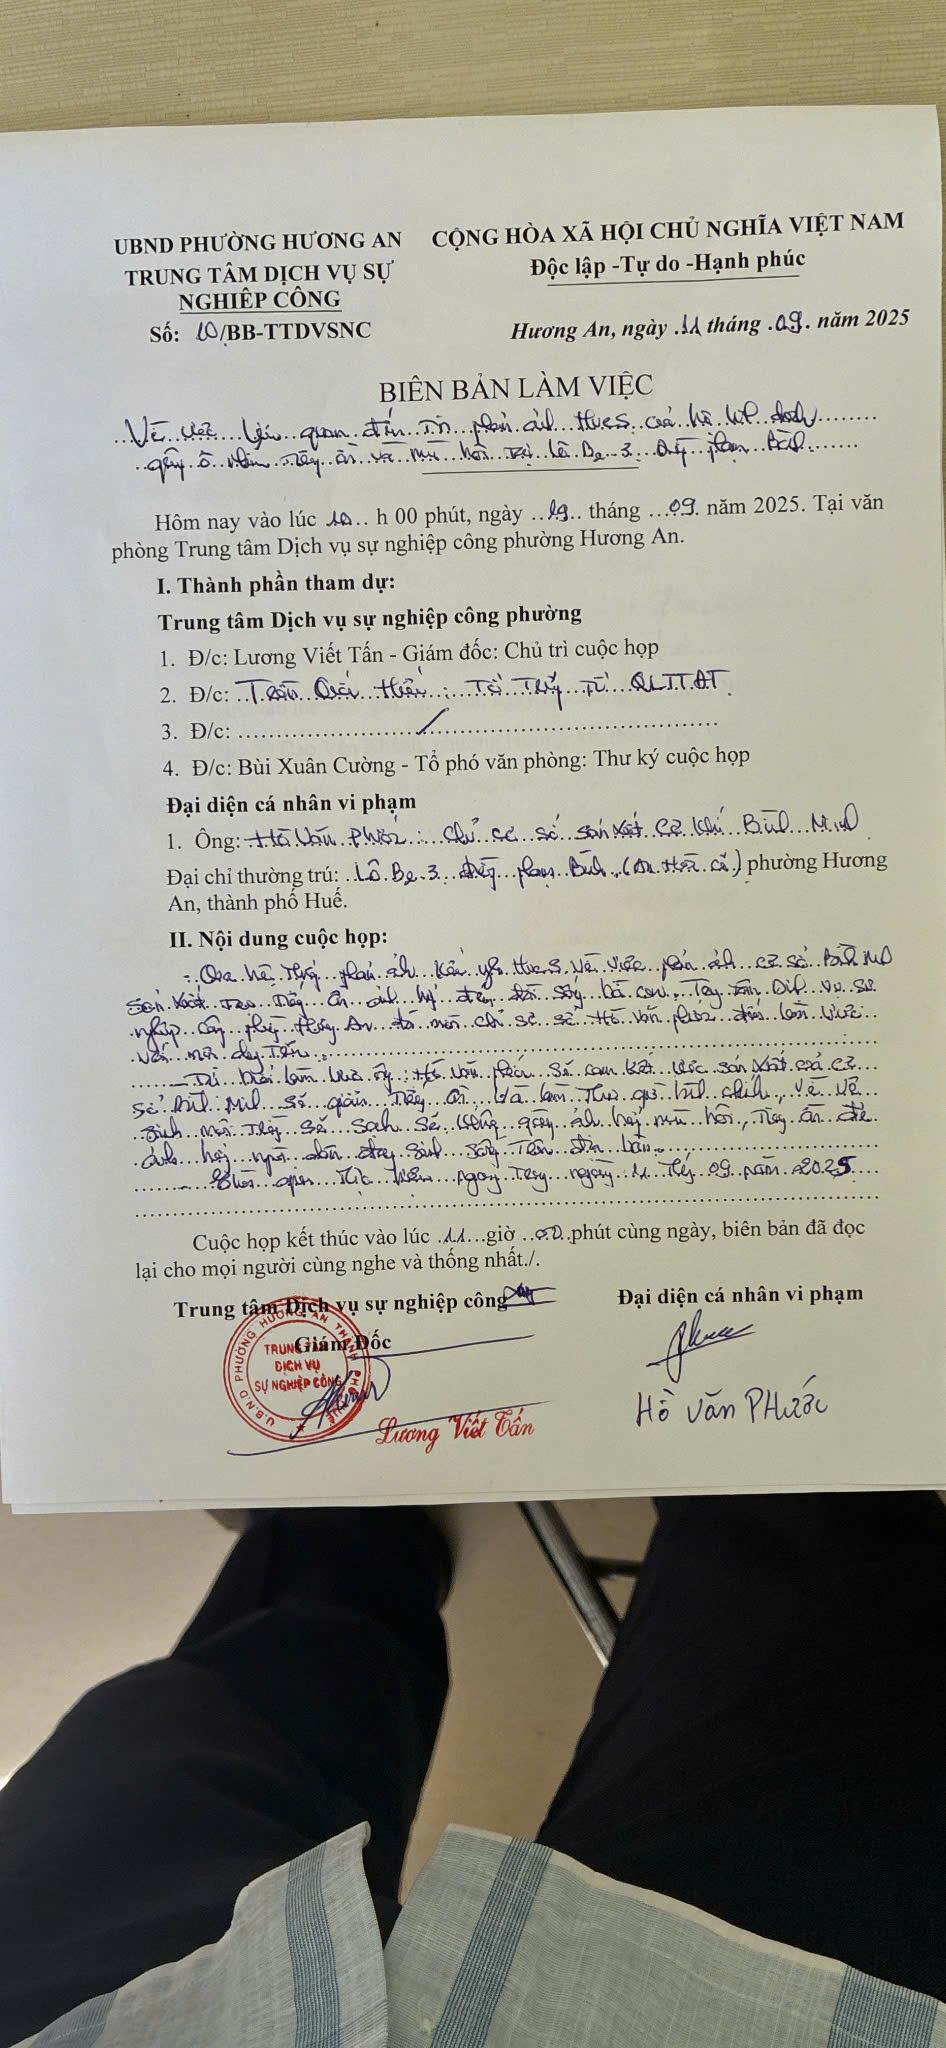 UBND PHƯỜNG HƯƠNG AN
TRUNG TÂM DỊCH VỤ SỰ
NGHIỆP CÔNG
Số: 10/BB-TTDVSNC
CỘNG HÒA XÃ HỘI CHỦ NGHĨA VIỆT NAM
Độc lập -Tự do -Hạnh phúc
Hương An, ngày 11 tháng 09. năm 2025
BIÊN BẢN LÀM VIỆC
Về việc liên quan đến phản ánh HueS của hộ
gây ô nhiễm tiếng ồn và mùi hôi tại lô Be 3 Phạm Bành
Hôm nay vào lúc 10 h 00 phút, ngày tháng 09. năm 2025. Tại văn
phòng Trung tâm Dịch vụ sự nghiệp công phường Hương An.
I. Thành phần tham dự:
Trung tâm Dịch vụ sự nghiệp công phường
1. Đ/c: Lương Viết Tấn - Giám đốc: Chủ trì cuộc họp
2. Đ/c: Trần Hiếu : Tổ QLTTĐT
3. Đ/c:
4. Đ/c: Bùi Xuân Cường - Tổ phó văn phòng: Thư ký cuộc họp
Đại diện cá nhân vi phạm
1. Ông: Hồ Văn Phước : chủ cơ sở sản xuất cơ khí Bình Minh
Đại chỉ thường trú: Lô Be 3 Phạm Bành (An Hòa cũ) phường Hương
An, thành phố Huế.
II. Nội dung cuộc họp:
- Qua hệ thống phản ánh HueS về việc phản ánh cơ sở Bình Minh
sản xuất tiếng ồn ảnh hưởng đến bà con, Trung tâm Dịch vụ sự
nghiệp công phường Hương An đã mời chủ cơ sở Hồ Văn Phước đến làm việc
với nội dung trên.
làm việc ông: Hồ Văn Phước cam kết việc sản xuất của cơ
sở Bình Minh sẽ giảm tiếng ồn và làm hành chính, về vệ
sinh môi trường sẽ sạch sẽ không gây ảnh hưởng mùi hôi, tiếng ồn để
ảnh hưởng người dân đang sinh sống trên địa bàn.
- Thời gian thực hiện ngay trong ngày 11 tháng 09 năm 2025
Cuộc họp kết thúc vào lúc 11 giờ 00 phút cùng ngày, biên bản đã đọc
lại cho mọi người cùng nghe và thống nhất./.
Trung tâm Dịch vụ sự nghiệp công
Đại diện cá nhân vi phạm
Giám Đốc
U.B.N.D PHƯỜNG HƯƠNG AN THÀNH PHỐ HUẾ
TRUNG TÂM
DỊCH VỤ
SỰ NGHIỆP CÔNG
Lương Viết Tấn
Hồ Văn PHước